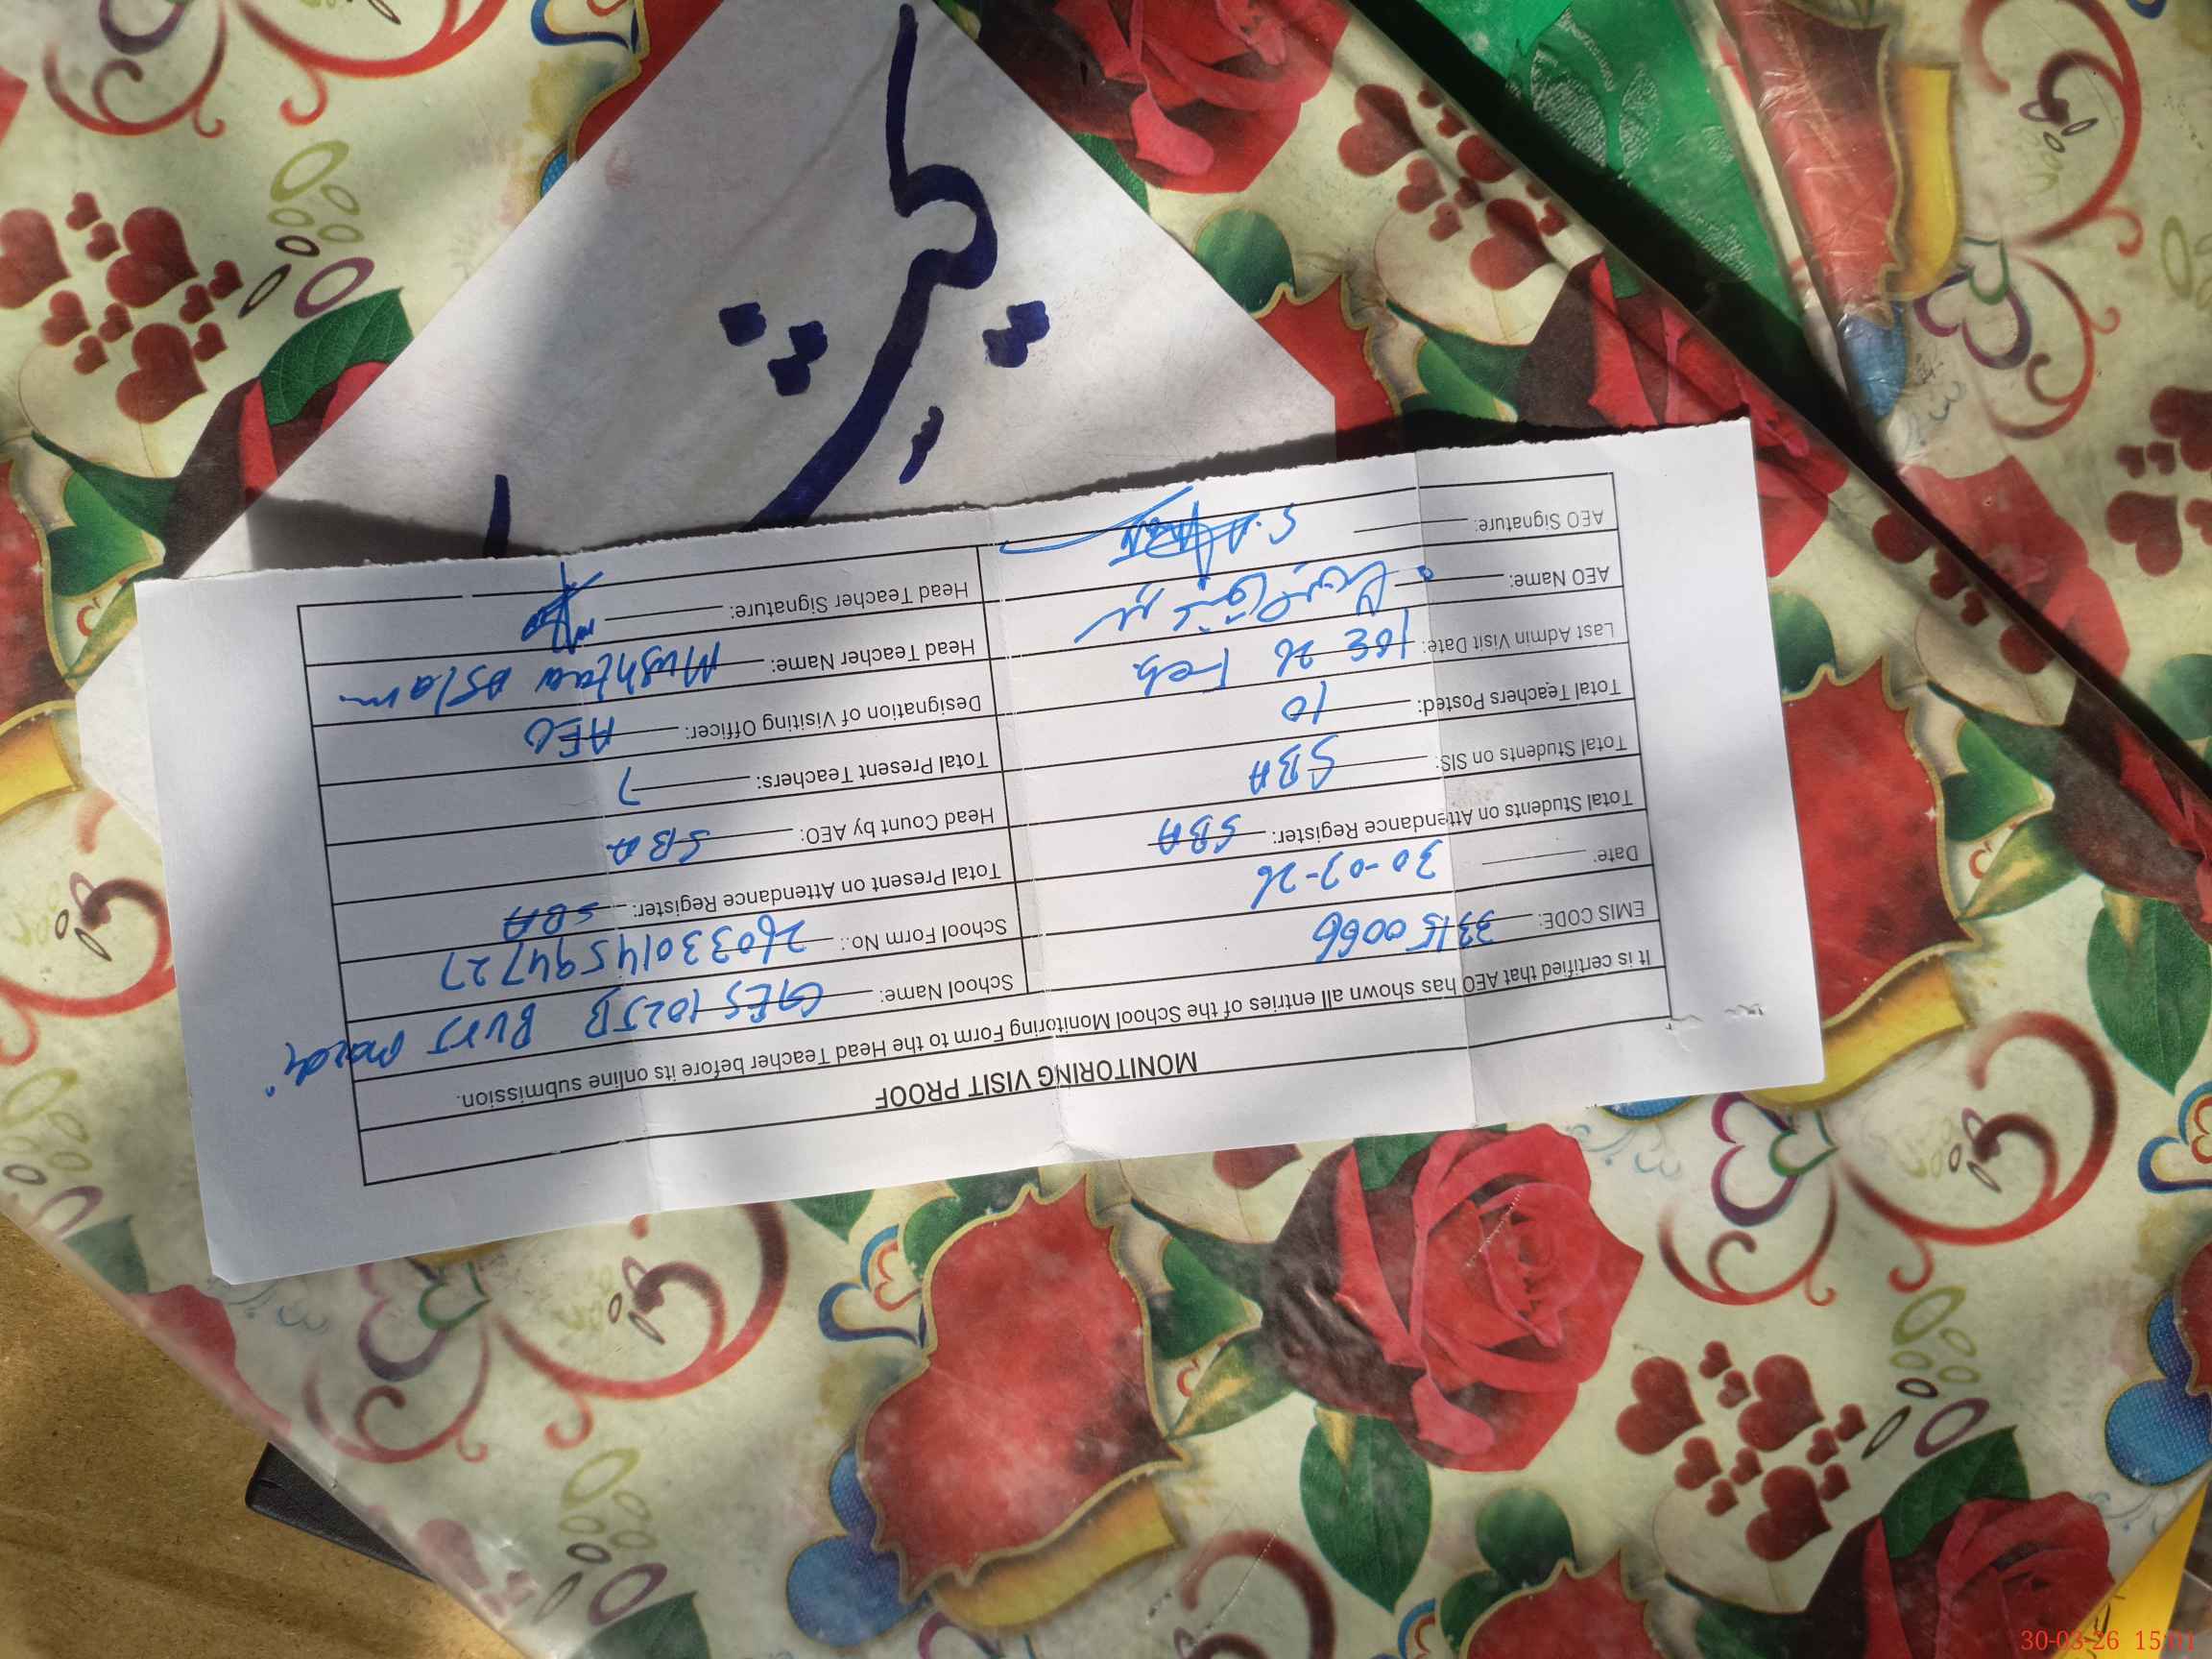 MONITORING VISIT PROOF
It is certified that AEO has shown all entries of the School Monitoring Form to the Head Teacher before its online submission.
EMIS CODE: 33150066
School Name: GES 102JB BURJ
Date: 30-03-26
School Form No.: 26033014594727
Total Students on Attendance Register: SBA
Total Present on Attendance Register: SBA
Total Students on SIS: SBA
Head Count by AEO: SBA
Total Teachers Posted: 10
Total Present Teachers: 7
Last Admin Visit Date: 26 Feb
Designation of Visiting Officer: AEO
AEO Name:
Head Teacher Name: Mushtaq Aslam
AEO Signature:
Head Teacher Signature:
30-03-26 15:01